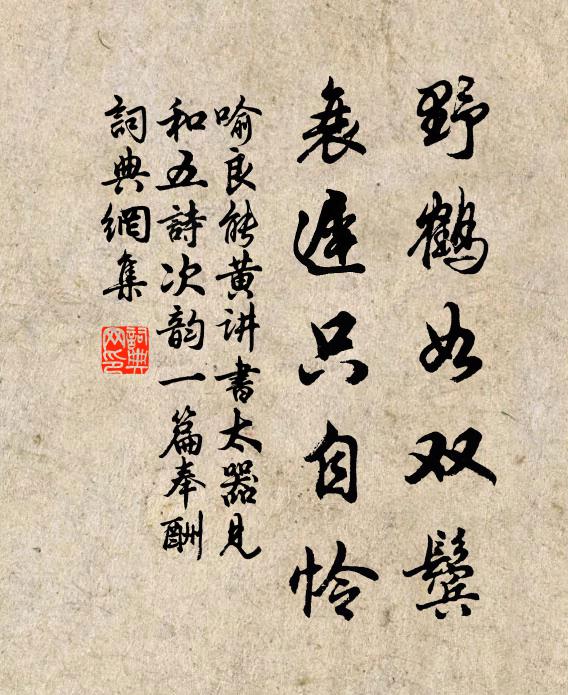 野鹤如双鬓
衰迟只自怜
喻良能黄讲书太器见
和五詩次韵一篇奉酬
詞典網集
詞典網印